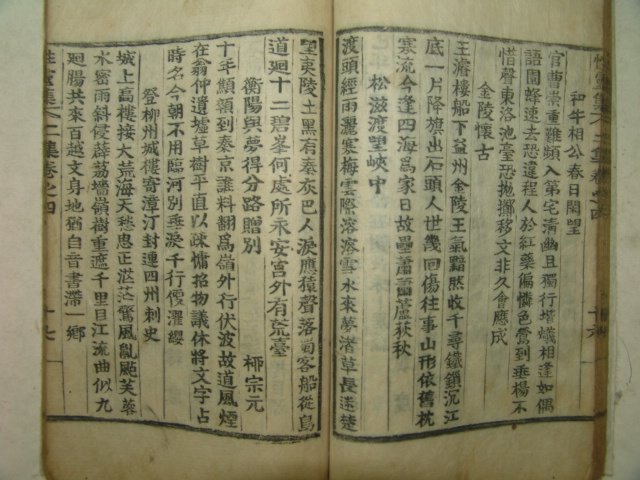 和牛相公春日閑望
官曹崇重難頻入第宅清幽且獨行堦蟻相逢如偶
語園蜂速去恐違程人於紅藥偏憐色鶯到垂楊不
惜聲東洛池臺恐抛擲移文非久會應成
金陵懷古
王濬樓船下益州金陵王氣黯然收千尋鐵鎖沉江
底一片降旗出石頭人世幾回傷往事山形依舊枕
寒流今逢四海爲家日故壘蕭蕭蘆荻秋
松滋渡望峽中
渡頭輕雨灑寒梅雲際溶溶雪水來夢渚草長迷楚
望夷陵土黑有秦灰巴人淚應猿聲落蜀客船從鳥
道廻十二碧峯何處所永安宮外有荒臺
衡陽與夢得分路贈別 柳宗元
十年顦顇到秦京誰料翻爲嶺外行伏波故道風煙
在翁仲遺墟草樹平直以疎慵招物議休將文字占
時名今朝不用臨河別垂淚千行便濯纓
登柳州城樓寄漳汀封連四州刺史
城上高樓接大荒海天愁思正茫茫驚風亂颭芙蓉
水密雨斜侵薜荔墻嶺樹重遮千里目江流曲似九
廻腸共來百越文身地猶自音書滯一鄉
二集卷之四 十七